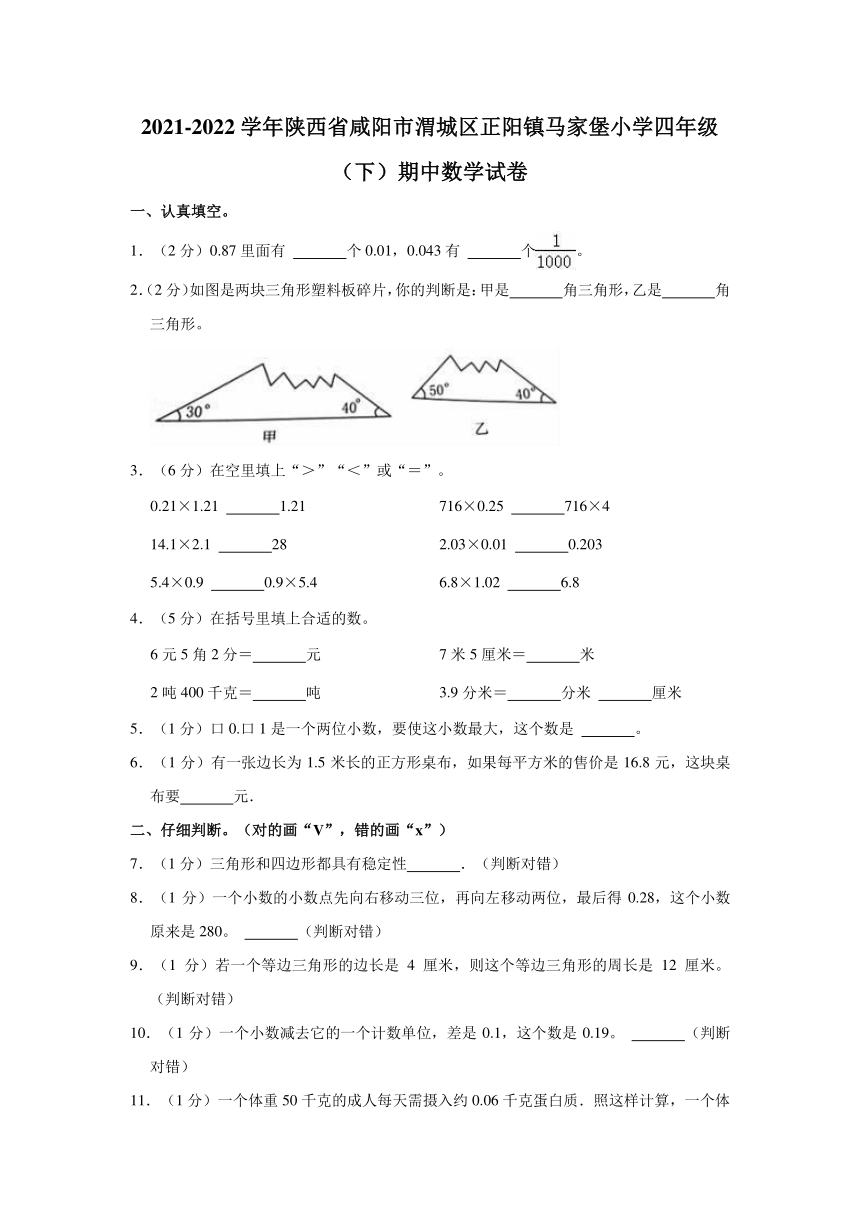 2021-2022 学年陕西省咸阳市渭城区正阳镇马家堡小学四年级
（下）期中数学试卷
一、认真填空。
1．（2 分）0.87 里面有 _______个 0.01，0.043 有 _______个1/1000。
2．（2 分）如图是两块三角形塑料板碎片，你的判断是：甲是_______角三角形，乙是_______角
三角形。
30° 40° 50° 40°
甲 乙
3．（6 分）在空里填上“＞”“＜”或“＝”。
0.21×1.21 _______1.21 716×0.25 _______716×4
14.1×2.1 _______28 2.03×0.01 _______0.203
5.4×0.9 _______0.9×5.4 6.8×1.02 _______6.8
4．（5 分）在括号里填上合适的数。
6 元 5 角 2 分＝_______元 7 米 5 厘米＝_______米
2 吨 400 千克＝_______吨 3.9 分米＝_______分米 _______厘米
5．（1 分）口 0.口 1 是一个两位小数，要使这小数最大，这个数是 _______。
6．（1 分）有一张边长为 1.5 米长的正方形桌布，如果每平方米的售价是 16.8 元，这块桌
布要_______元．
二、仔细判断。（对的画“V”，错的画“x”）
7．（1 分）三角形和四边形都具有稳定性_______．（判断对错）
8．（1 分）一个小数的小数点先向右移动三位，再向左移动两位，最后得 0.28，这个小数
原来是 280。 _______（判断对错）
9．（1 分）若一个等边三角形的边长是 4 厘米，则这个等边三角形的周长是 12 厘米。
（判断对错）
10．（1 分）一个小数减去它的一个计数单位，差是 0.1，这个数是 0.19。 _______（判断
对错）
11．（1 分）一个体重 50 千克的成人每天需摄入约 0.06 千克蛋白质．照这样计算，一个体